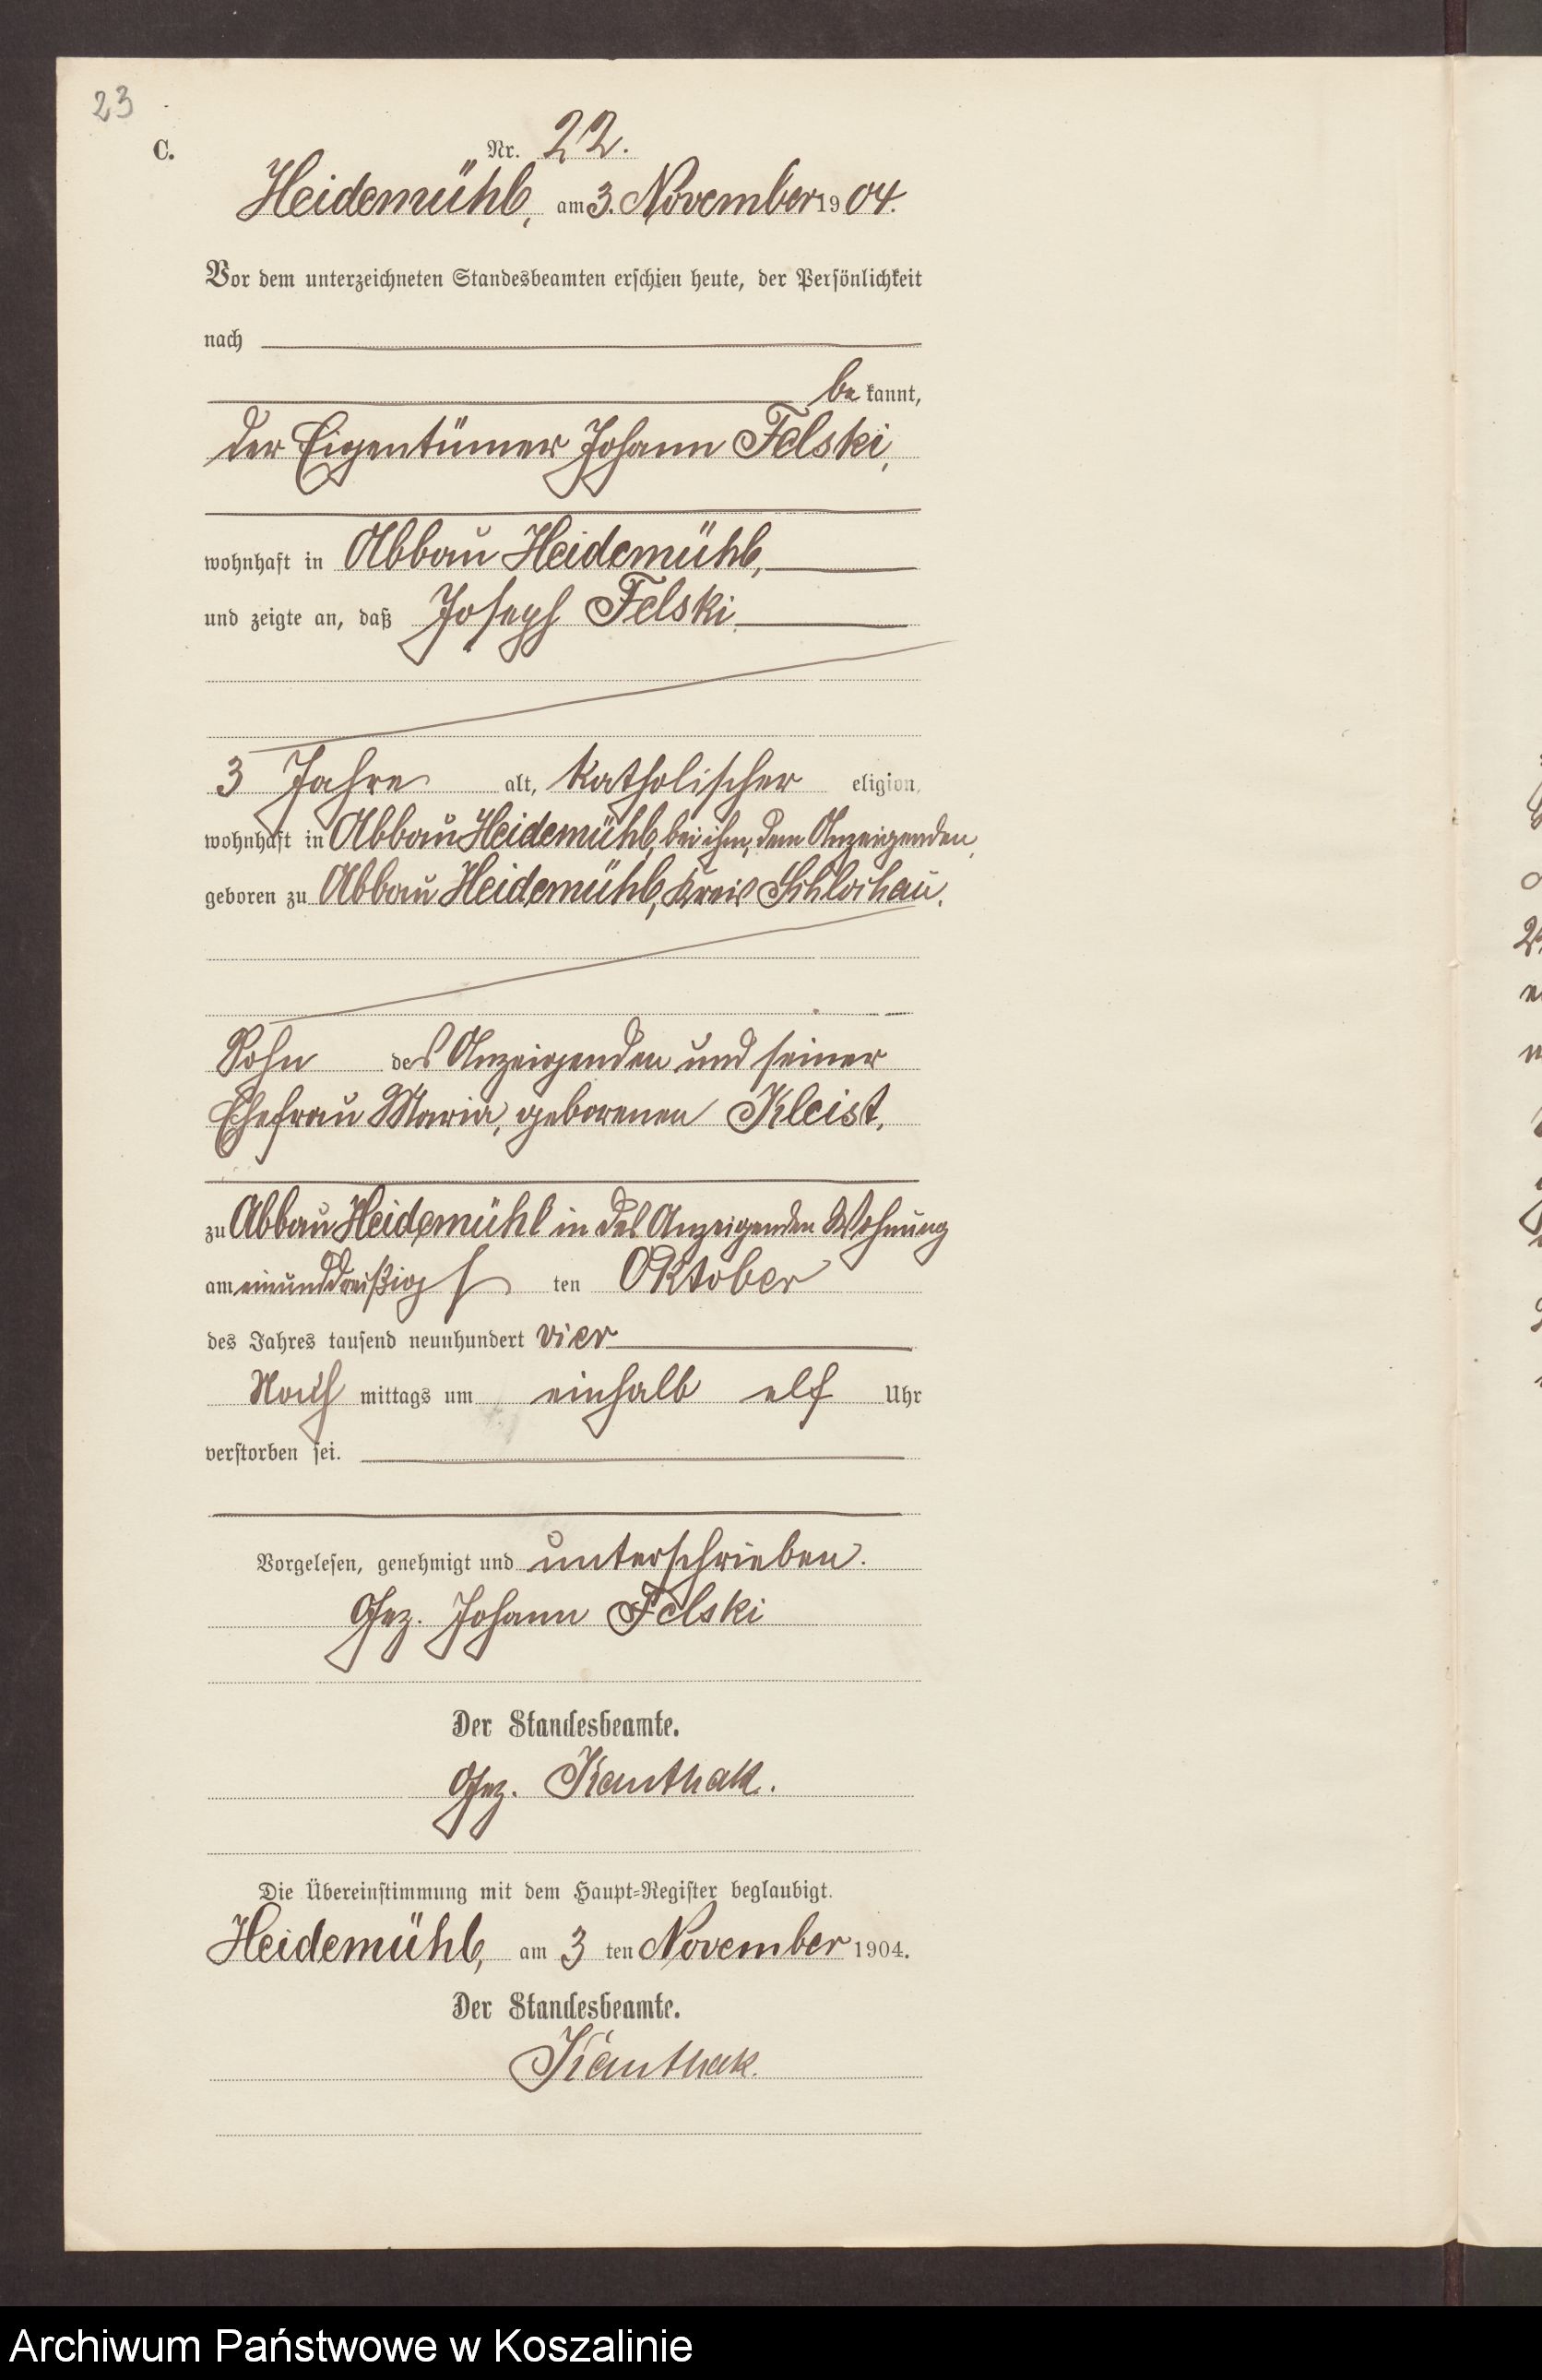 23
C.
Nr. 22.
Heidemühl, am 3. November 1904.
Vor dem unterzeichneten Standesbeamten erschien heute, der Persönlichkeit
nach
be kannt,
der Eigentümer Johann Felski,
wohnhaft in Abbau Heidemühl,
und zeigte an, daß Joseph Felski
3 Jahre alt, katholischer eligion,
wohnhaft in Abbau Heidemühl, bei ihm, dem Anzeigenden,
geboren zu Abbau Heidemühl, Kreis Schlochau.
Sohn des Anzeigenden und seiner
Ehefrau Maria, geborenen Kleist,
zu Abbau Heidemühl in des Anzeigenden Wohnung
am einunddreißigs ten Oktober
des Jahres tausend neunhundert vier
Nach mittags um einhalb elf Uhr
verstorben sei.
Vorgelesen, genehmigt und unterschrieben.
Gez. Johann Felski
Der Standesbeamte.
Gez. Kanthak.
Die Übereinstimmung mit dem Haupt-Register beglaubigt.
Heidemühl, am 3 ten November 1904.
Der Standesbeamte.
Kanthak.
Archiwum Państwowe w Koszalinie